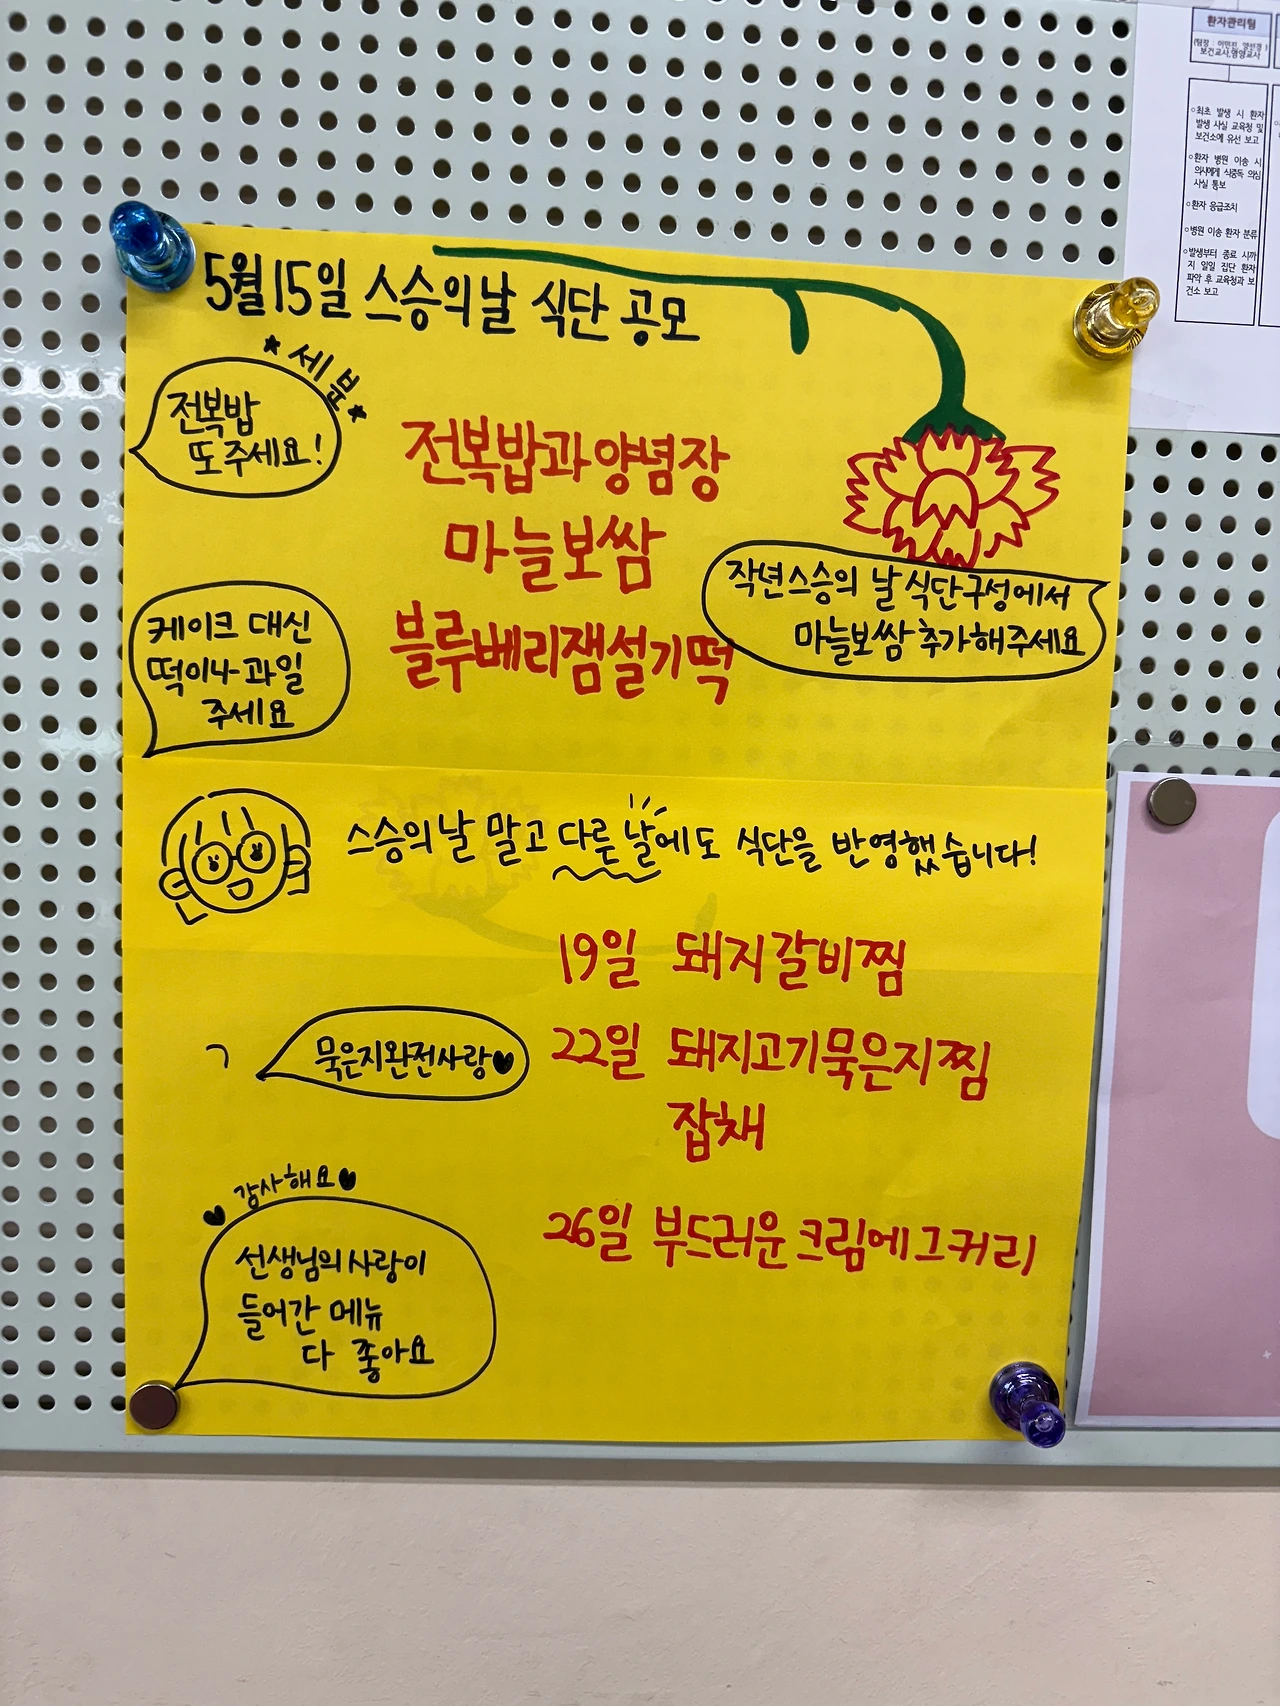 환자관리팀
보건교사,영양교사
○최초 발생 시 환자
발생 사실 교육청 및
보건소에 유선 보고
○환자 병원 이송 시
의사에게 식중독 의심
사실 통보
○환자 응급조치
○병원 이송 환자 분류
○발생부터 종료 시까
지 일일 집단 환자
파악 후 교육청과 보
건소 보고
5월15일 스승의날 식단 공모
★세분★
전복밥
또주세요!
전복밥과 양념장
마늘보쌈
블루베리잼설기떡
작년스승의 날 식단구성에서
마늘보쌈 추가해주세요
케이크 대신
떡이나 과일
주세요
스승의날 말고 다른 날에도 식단을 반영했습니다!
19일 돼지갈비찜
묵은지완전사랑♥
22일 돼지고기묵은지찜
잡채
26일 부드러운크림에그커리
♥감사해요♥
선생님의사랑이
들어간 메뉴
다 좋아요